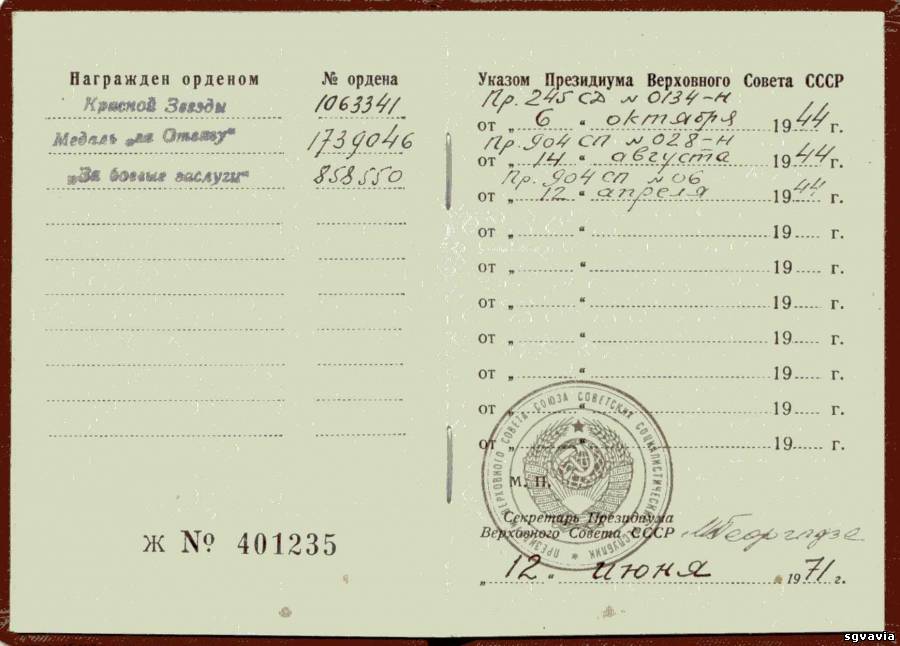 Награжден орденом № ордена
Красной Звезды 1063341
Медаль „за Отвагу“ 1739046
„За боевые заслуги“ 858550
Ж № 401235
Указом Президиума Верховного Совета СССР
Пр. 245 СД № 0134-н
от „ 6 “ октября 1944 г.
Пр. 904 СП № 028-н
от „ 14 “ августа 1944 г.
Пр. 904 СП № 06
от „ 12 “ апреля 1944 г.
от „ “ 19 г.
от „ “ 19 г.
от „ “ 19 г.
от „ “ 19 г.
от „ “ 19 г.
от „ “ 19 г.
от „ “ 19 г.
ПРЕЗИДИУМ ВЕРХОВНОГО СОВЕТА СОЮЗА СОВЕТСКИХ СОЦИАЛИСТИЧЕСКИХ РЕСПУБЛИК
М. П.
Секретарь Президиума
Верховного Совета СССР МГеоргадзе
„ 12 “ июня 1971 г.
sgvavia